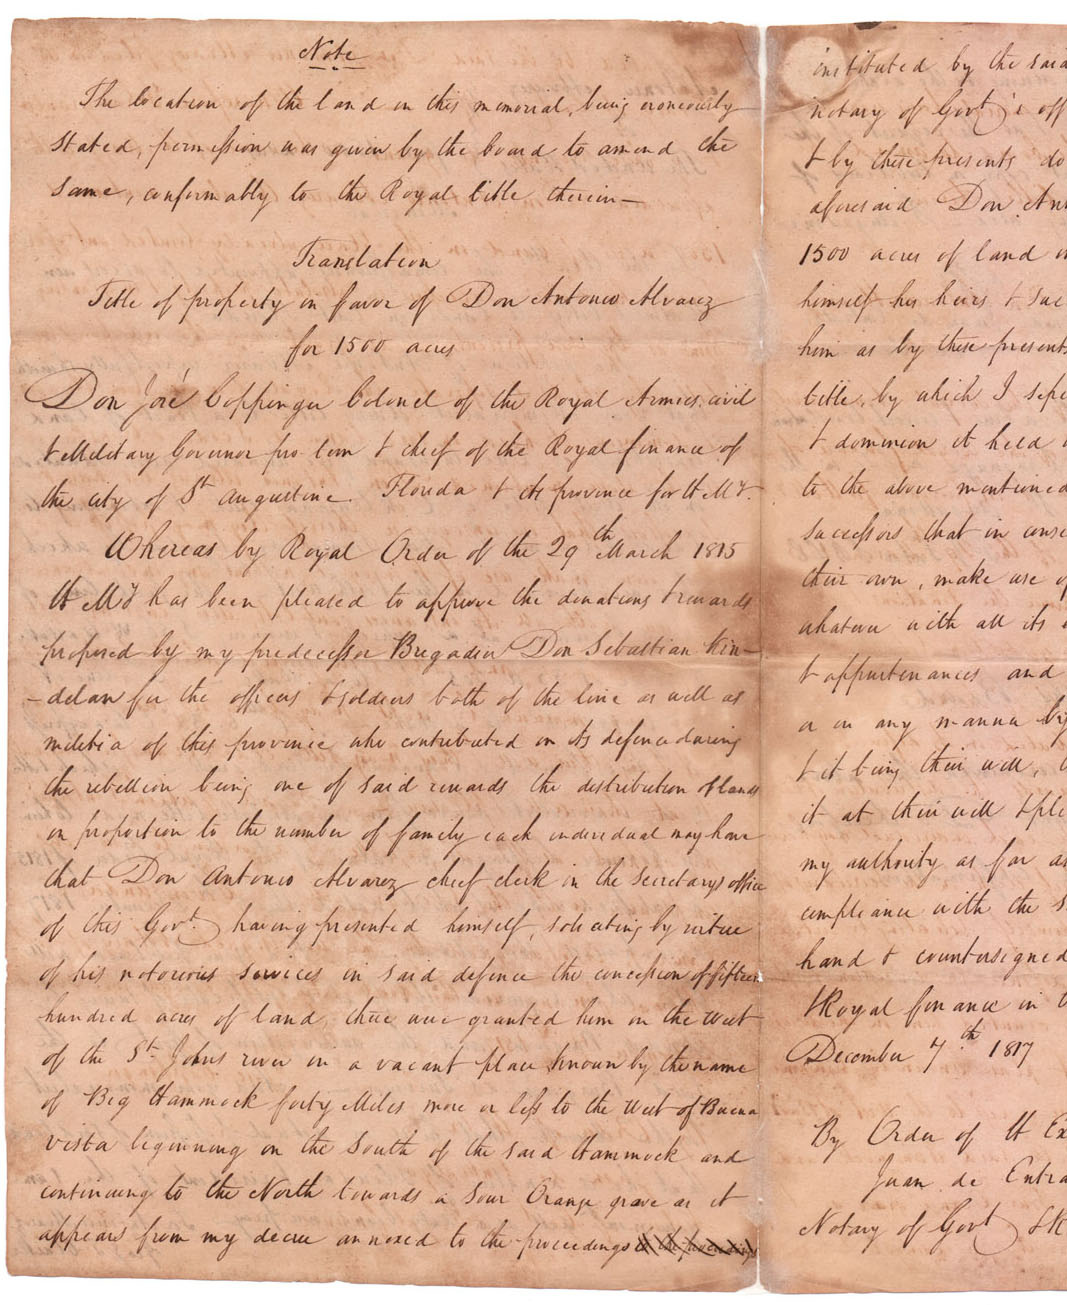 Note
The location of the land in this memorial, being eroneously
stated, permission was given by the board to amend the
same, conformably to the Royal title therein—
Translation
Title of property in favor of Don Antonio Alvarez
for 1500 acres
Don José Coppinger Colonel of the Royal Armies, civil
& Military Governor pro tem & chief of the Royal finance of
the city of St Augustine. Florida & its province for H M&c.
Whereas by Royal Order of the 29th March 1815
H My has been pleased to approve the donations & rewards
proposed by my predecessor Brigadier Don Sebastian Kin-
-delan for the officers & soldiers both of the line as well as
militia of this province who contributed in its defence during
the rebellion being one of said rewards the distribution of lands
in proportion to the number of family each individual may have
that Don Antonio Alvarez chief clerk in the Secretarys office
of this Govt. having presented himself, soliciting by virtue
of his notorious services in said defence the concession of fifteen
hundred acres of land, there were granted him on the West
of the St. Johns river in a vacant place known by the name
of Big Hammock forty Miles more or less to the West of Buena
vista beginning on the South of the said Hammock and
continuing to the North towards a Sour Orange grove as it
appears from my decree annexed to the proceedings
instituted by the said
notary of Govt's off
& by these presents do
aforesaid Don Ant
1500 acres of land
himself his heirs & suc
him as by these presents
title, by which I sepe
& dominion it held
to the above mentioned
successors that in conse
their own, make use of
whatever with all its
& appurtenances and
or in any manner by
& it being their will,
it at their will & ple
my authority as far as
compliance with the s
hand & countersigned
& Royal finance in t
December 7th 1817
By Order of H Ex
Juan de Entra
Notary of Govt & R